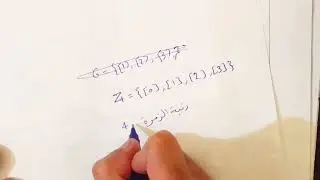 G = {[1], [2], [3]}
Z₄ = {[0], [1], [2], [3]}
رتبة الزمرة 4